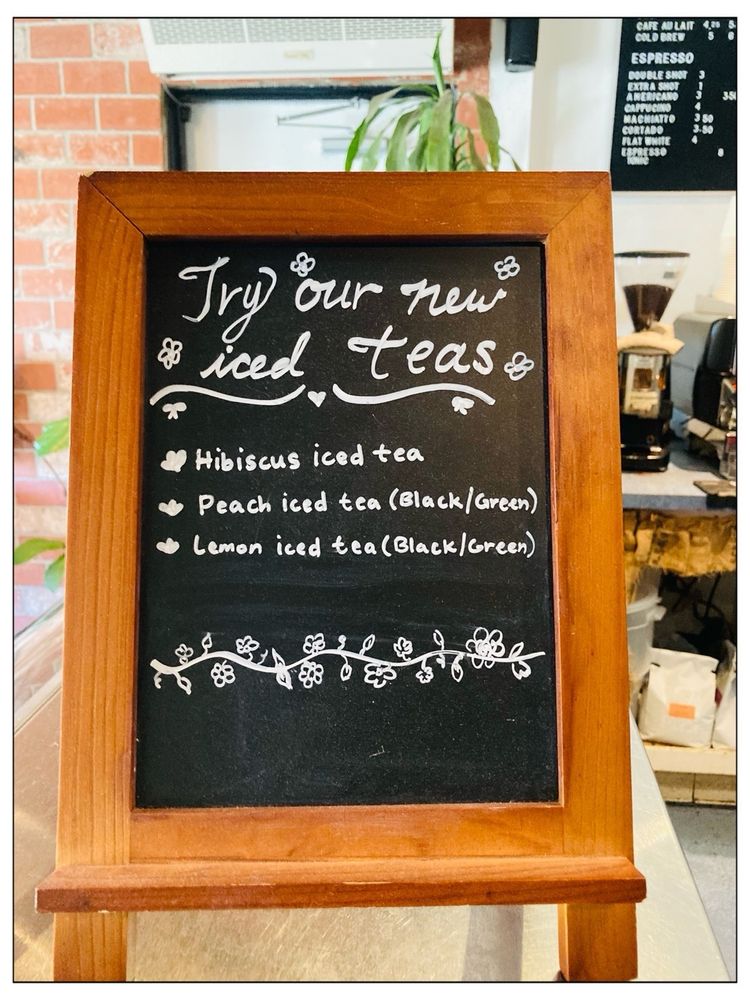 CAFE AU LAIT 4.25 5
COLD BREW 5 6
ESPRESSO
DOUBLE SHOT 3
EXTRA SHOT 1
AMERICANO 3 3.50
CAPPUCINO 4
MACHIATTO 3.50
CORTADO 3.50
FLAT WHITE 4
ESPRESSO 8
TONIC
Try our new
iced teas
Hibiscus iced tea
Peach iced tea (Black/Green)
Lemon iced tea (Black/Green)